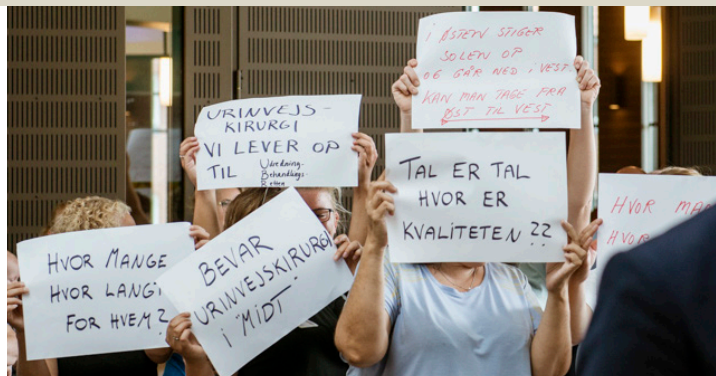 I ØSTEN STIGER
SOLEN OP
OG GÅR NED I VEST.
KAN MAN TAGE FRA
ØST TIL VEST
URINVEJS-
KIRURGI
VI LEVER OP
TIL Udrednings-
Behandlings-
Retten
TAL ER TAL
HVOR ER
KVALITETEN ??
HVOR MANGE
HVOR LANGT
FOR HVEM?
BEVAR
URINVEJSKIRURGI
i "MIDT"
HVOR
HVOR